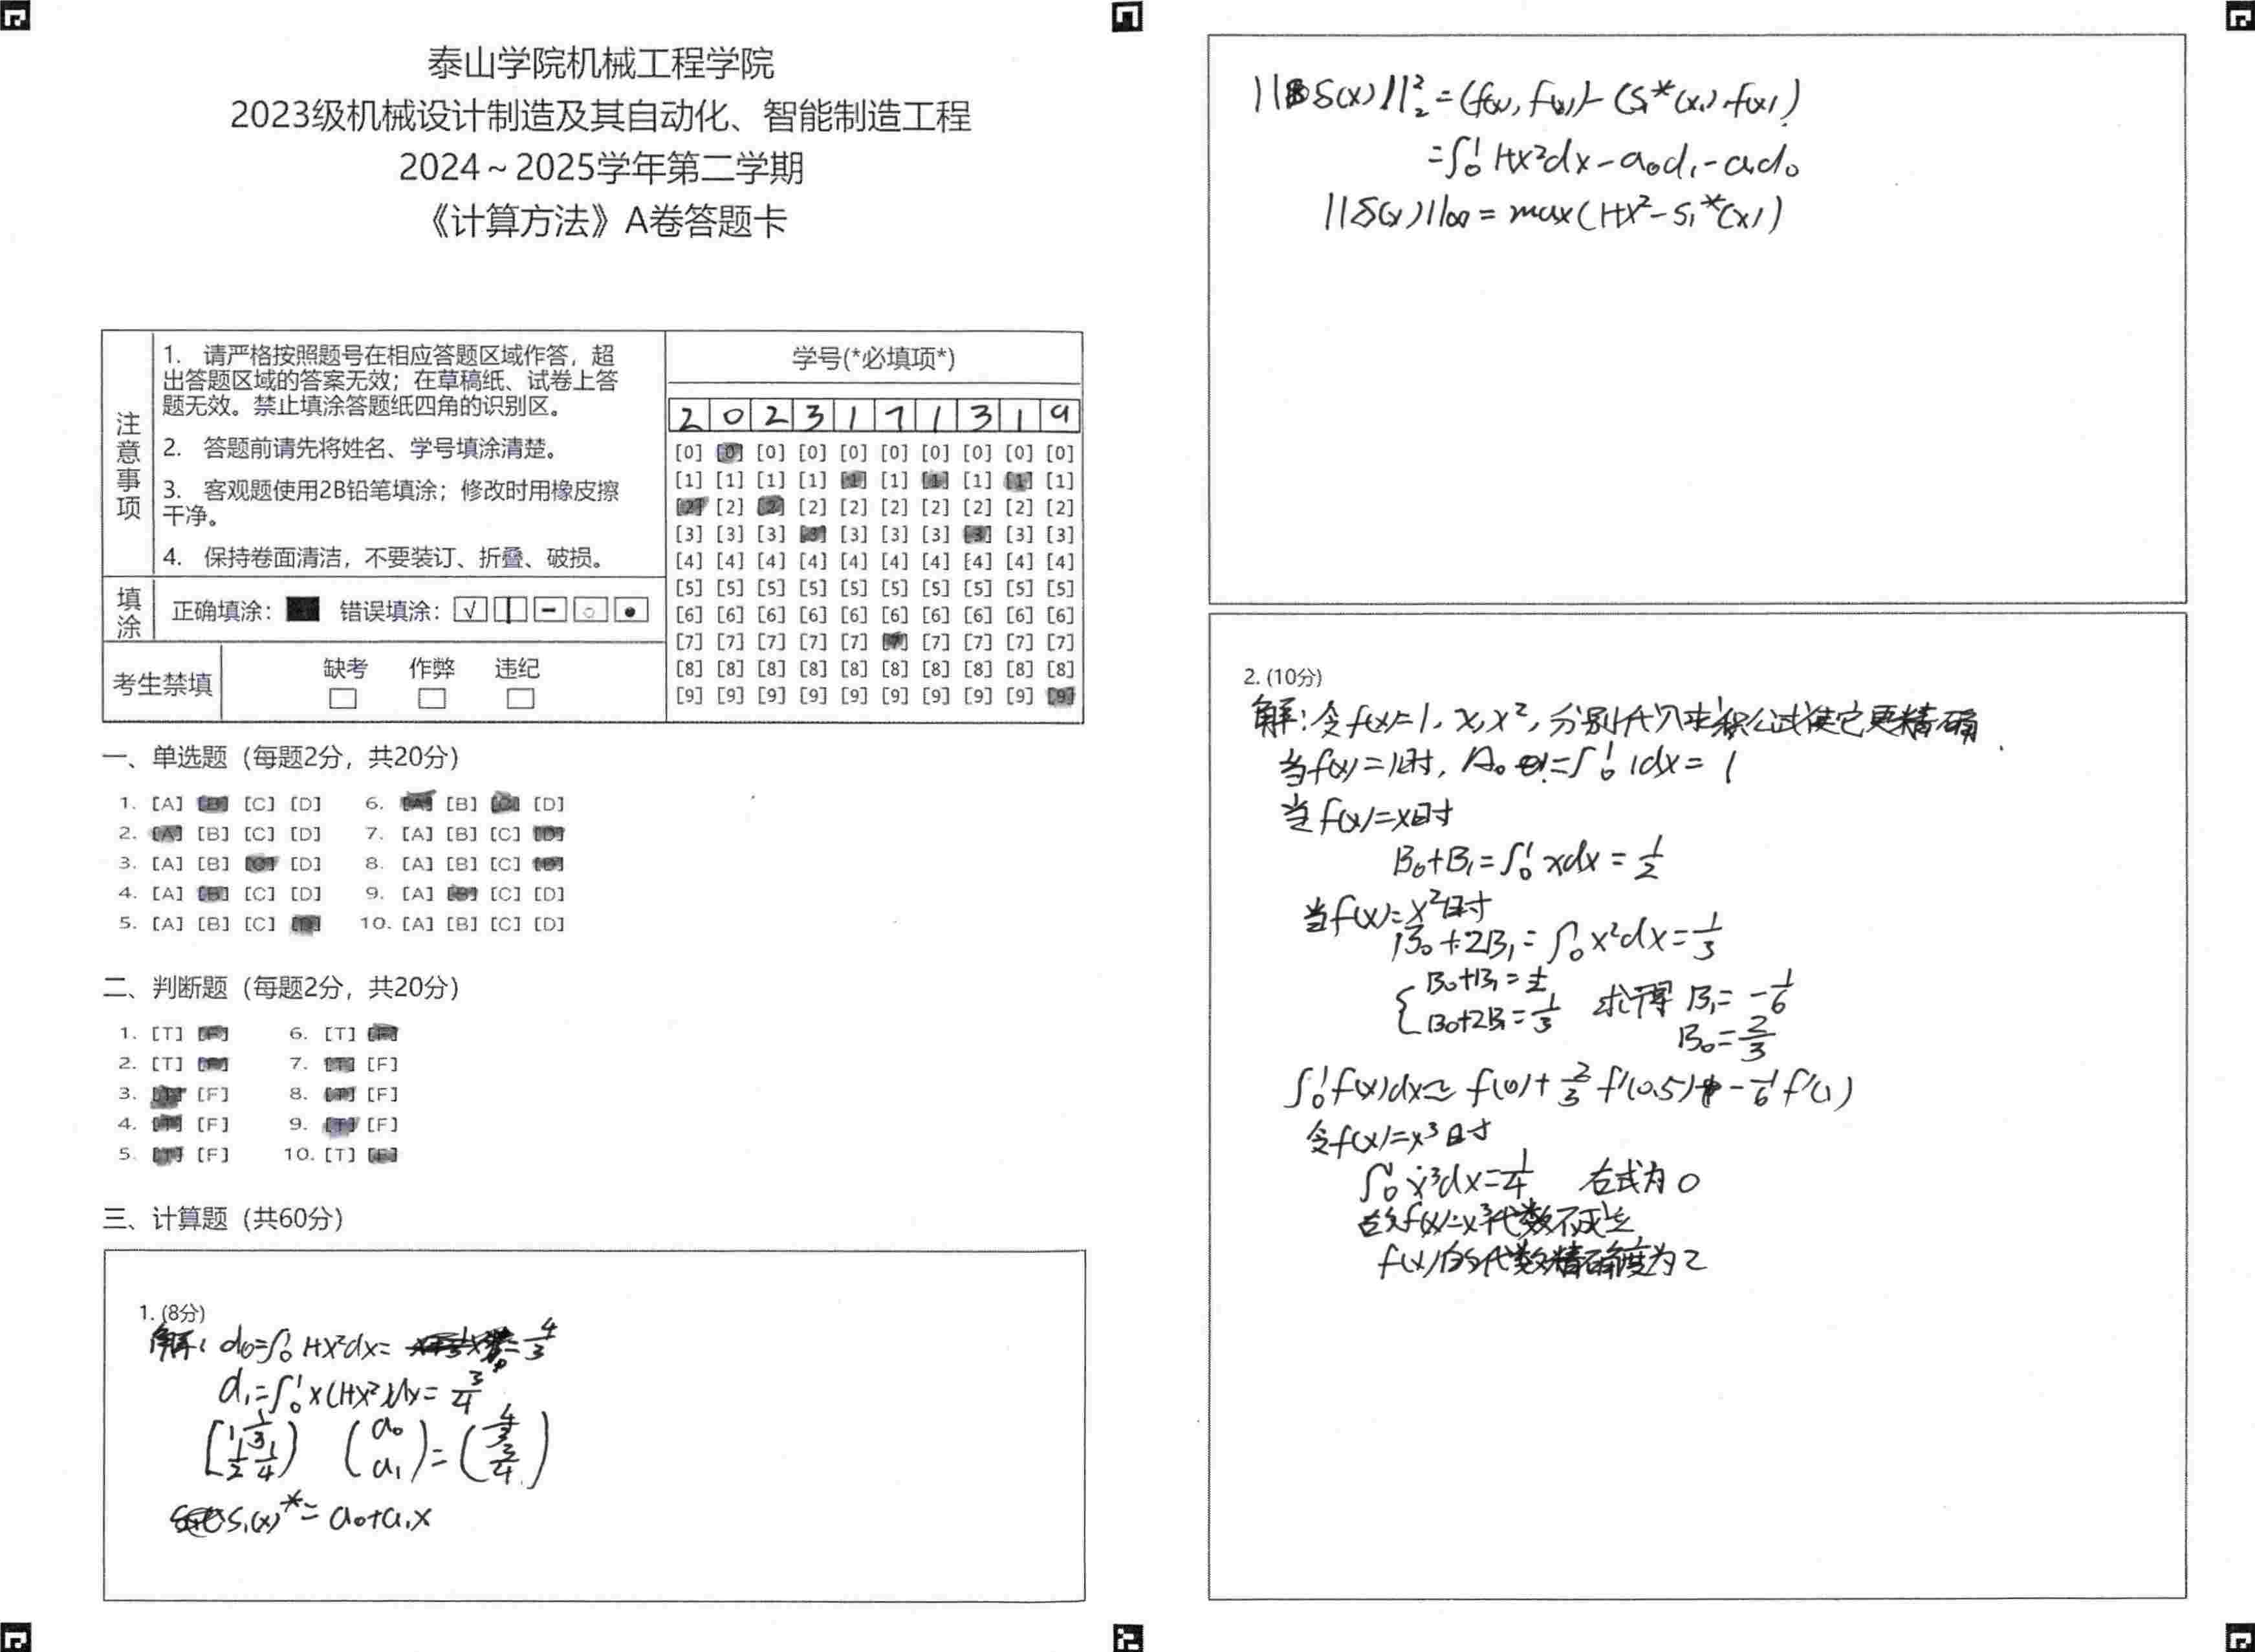 泰山学院机械工程学院
2023级机械设计制造及其自动化、智能制造工程
2024～2025学年第二学期
《计算方法》A卷答题卡
注意事项
1. 请严格按照题号在相应答题区域作答，超
出答题区域的答案无效；在草稿纸、试卷上答
题无效。禁止填涂答题纸四角的识别区。
2. 答题前请先将姓名、学号填涂清楚。
3. 客观题使用2B铅笔填涂；修改时用橡皮擦
干净。
4. 保持卷面清洁，不要装订、折叠、破损。
填涂 正确填涂： 错误填涂：
考生禁填 缺考 作弊 违纪
学号(*必填项*)
2 0 2 3 1 7 1 3 1 9
[0] [0] [0] [0] [0] [0] [0] [0] [0] [0]
[1] [1] [1] [1] [1] [1] [1] [1] [1] [1]
[2] [2] [2] [2] [2] [2] [2] [2] [2] [2]
[3] [3] [3] [3] [3] [3] [3] [3] [3] [3]
[4] [4] [4] [4] [4] [4] [4] [4] [4] [4]
[5] [5] [5] [5] [5] [5] [5] [5] [5] [5]
[6] [6] [6] [6] [6] [6] [6] [6] [6] [6]
[7] [7] [7] [7] [7] [7] [7] [7] [7] [7]
[8] [8] [8] [8] [8] [8] [8] [8] [8] [8]
[9] [9] [9] [9] [9] [9] [9] [9] [9] [9]
一、单选题（每题2分，共20分）
1. [A] [B] [C] [D] 6. [A] [B] [C] [D]
2. [A] [B] [C] [D] 7. [A] [B] [C] [D]
3. [A] [B] [C] [D] 8. [A] [B] [C] [D]
4. [A] [B] [C] [D] 9. [A] [B] [C] [D]
5. [A] [B] [C] [D] 10. [A] [B] [C] [D]
二、判断题（每题2分，共20分）
1. [T] [F] 6. [T] [F]
2. [T] [F] 7. [T] [F]
3. [T] [F] 8. [T] [F]
4. [T] [F] 9. [T] [F]
5. [T] [F] 10. [T] [F]
三、计算题（共60分）
1. (8分)
解: d₀=∫₀¹ 1+x²dx= =4/3
d₁=∫₀¹ x(1+x²)dx= 3/4
[1 1/3 1/2 1/4) (a₀ a₁)=(4/3 3/4)
S₁(x)*= a₀+a₁x
||δ(x)||₂²=(f(x), f(x))-(S₁*(x), f(x))
=∫₀¹ 1+x²dx-a₀d₁-a₁d₀
||δ(x)||∞= max(1+x²-S₁*(x))
2. (10分)
解: 令f(x)=1, x, x², 分别代入求积公式使它更精确.
当f(x)=1时, A₀ =∫₀¹ 1dx= 1
当f(x)=x时
B₀+B₁=∫₀¹ xdx=1/2
当f(x)=x²时
B₀+2B₁=∫₀¹ x²dx=1/3
{B₀+B₁=1/2
B₀+2B₁=1/3 求得 B₁=-1/6
B₀=2/3
∫₀¹f(x)dx≈ f(0)+2/3 f'(0.5)-1/6 f'(1)
令f(x)=x³时
∫₀¹ x³dx=1/4 右式为0
当f(x)=x³代数不成立
f(x)的代数精确度为2